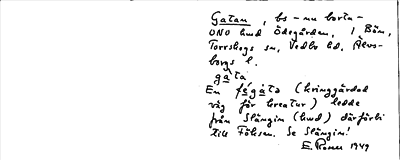 Gatan, bs – nu borta –
ONO hmd Ödegården, 1 Bön,
Torrskogs sn, Vedbo hd, Älvs-
borgs l.
gàta
En fégàtə (kringgärdad
väg för kreatur) ledde
från Slängim (hmd) därförbi
till Fölsen. Se Slängim!
E. Rosén 1949